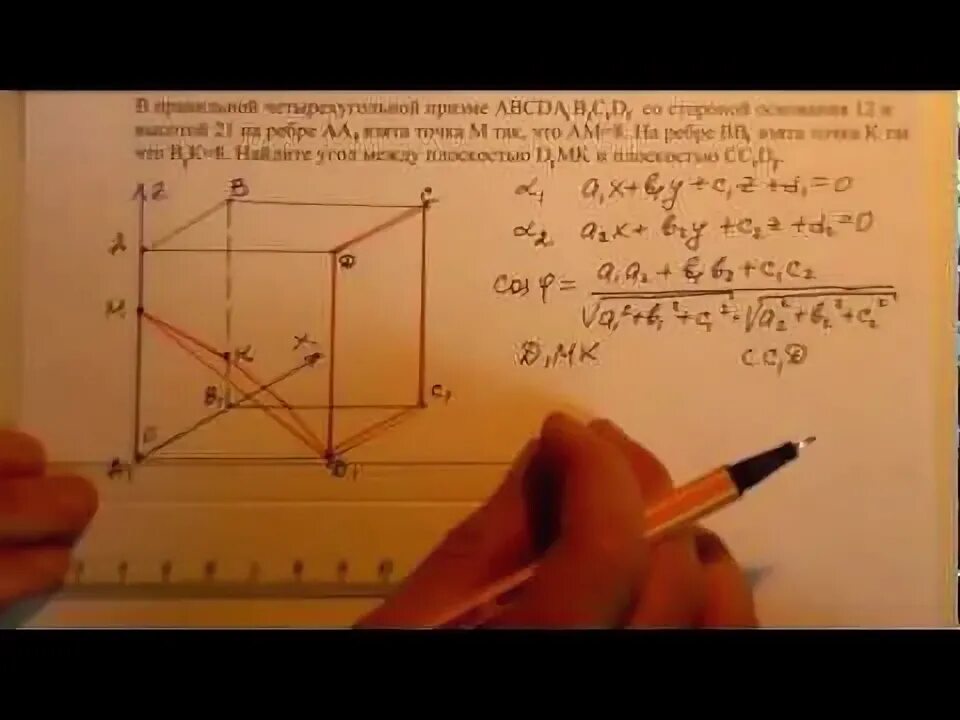 В правильной четырехугольной призме ABCDA₁B₁C₁D₁ со стороной основания 12 и
высотой 21 на ребре AA₁ взята точка М так, что AM=8. На ребре BB₁ взята точка K так
что B₁K=8. Найдите угол между плоскостью D₁MK и плоскостью CC₁D₁.
Z B C
α₁ a₁x+b₁y+c₁z+d₁=0
α₂ a₂x+b₂y+c₂z+d₂=0
D
cos φ = a₁a₂+b₁b₂+c₁c₂
√a₁²+b₁²+c₁² · √a₂²+b₂²+c₂²
M
X
K D₁MK CC₁D
B₁ C₁
A₁ D₁